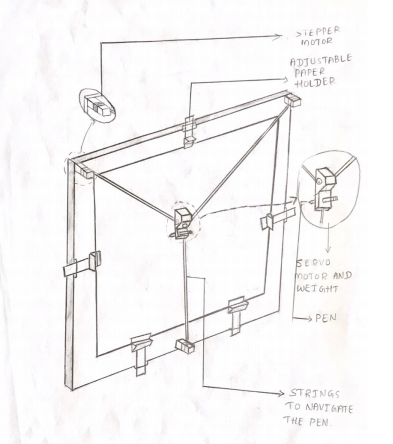 STEPPER
MOTOR
ADJUSTABLE
PAPER
HOLDER
SERVO
MOTOR AND
WEIGHT
PEN
STRINGS
TO NAVIGATE
THE PEN.